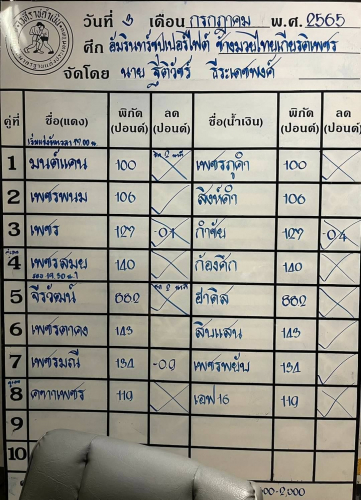 วันที่ 3 เดือน กรกฎาคม พ.ศ. 2565
ศึก อัมรินทร์ซุปเปอร์ไฟต์ ช้างมวยไทยเกียรติเพชร
จัดโดย นาย ฐิติวัชร์ ธีระเดชพงศ์
คู่ที่ ชื่อ(แดง) พิกัด (ปอนด์) ลด (ปอนด์) ชื่อ(น้ำเงิน) พิกัด (ปอนด์) ลด (ปอนด์)
1 มนต์แคน 100 เพชรภูคำ 100
2 เพชรพนม 106 สิงห์ดำ 106
3 เพชร 127 -0.1 กำชัย 127 -0.4
4 เพชรสมุย 140 ก้องศึก 140
5 จีรวัฒน์ ฮาดิล
6 เพชรตาคง 143 สิบแสน 143
7 เพชรมณี 134 -0.9 เพชรพยัพ 134
8 เพชร 119 เอฟ16 119
9
10
00-2,000